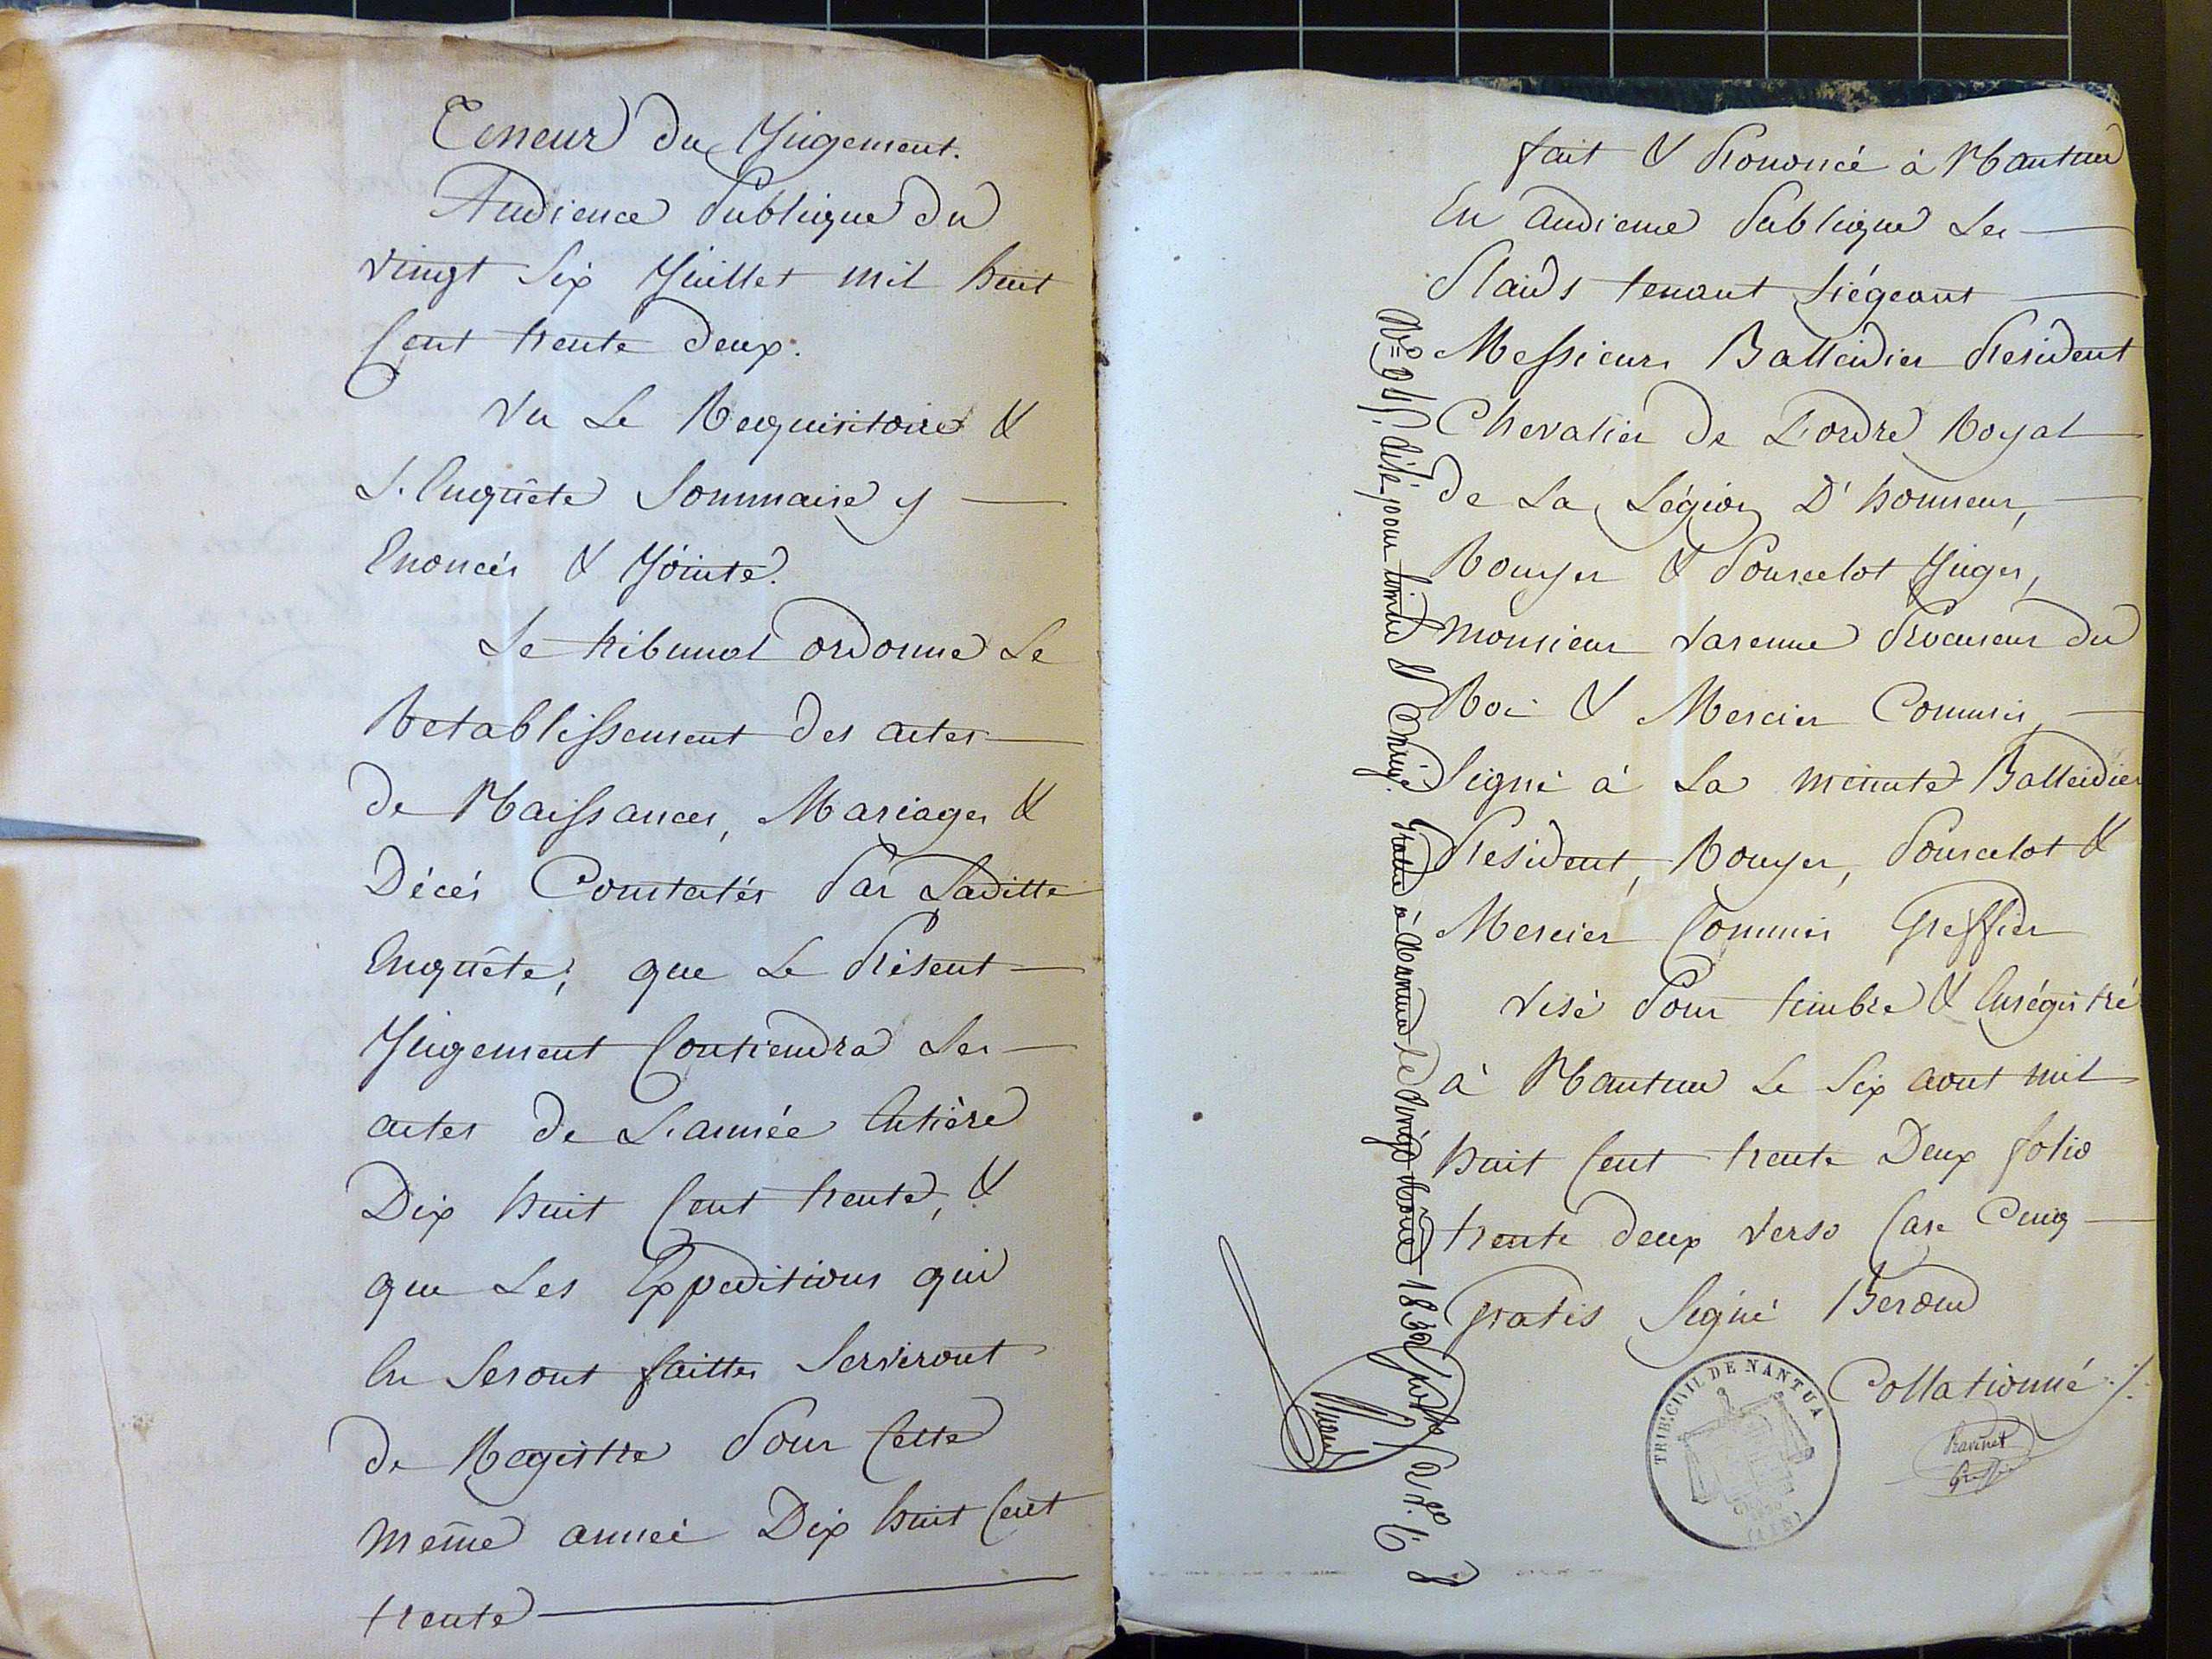 Teneur du Jugement.
Audience Publique du
vingt Six Juillet mil huit
Cent trente deux.
Vu Le Requisitoire &
L'Enquête Sommaire y
Enoncés & Jointe.
Le tribunal ordonne Le
Retablissement des actes
de Naissances, Mariages &
Décés Constatés Par Laditte
Enquête; que Le Présent
Jugement Contiendra Les
actes de L'année Entière
Dix huit Cent trente, &
que Les Expeditions qui
En Seront faittes Serviront
de Registre Pour Cette
même année Dix huit Cent
trente
fait & Prononcé à Nantua
En audience Publique Les
Plaids tenant Siégeant
Messieurs Balleidier President
Chevalier de L'ordre Royal
de La Légion D'honneur,
Rouyer & Pourcelot Juges,
Monsieur Varenne Procureur du
Roi & Mercier Commis,
Signé à La minute Balleidier
President, Rouyer, Pourcelot &
Mercier Commis Greffier
Visé Pour timbre & Enrégistré
à Nantua Le Six aout mil
huit Cent trente Deux folio
trente deux Verso Case Cinq
Gratis Signé Beroud
Collationné
Ravinet
Greffier
TRIB. CIVIL DE NANTUA
(AIN)
Visé pour timbre & Enrégé. Gratis à Nantua le Vingt 1832